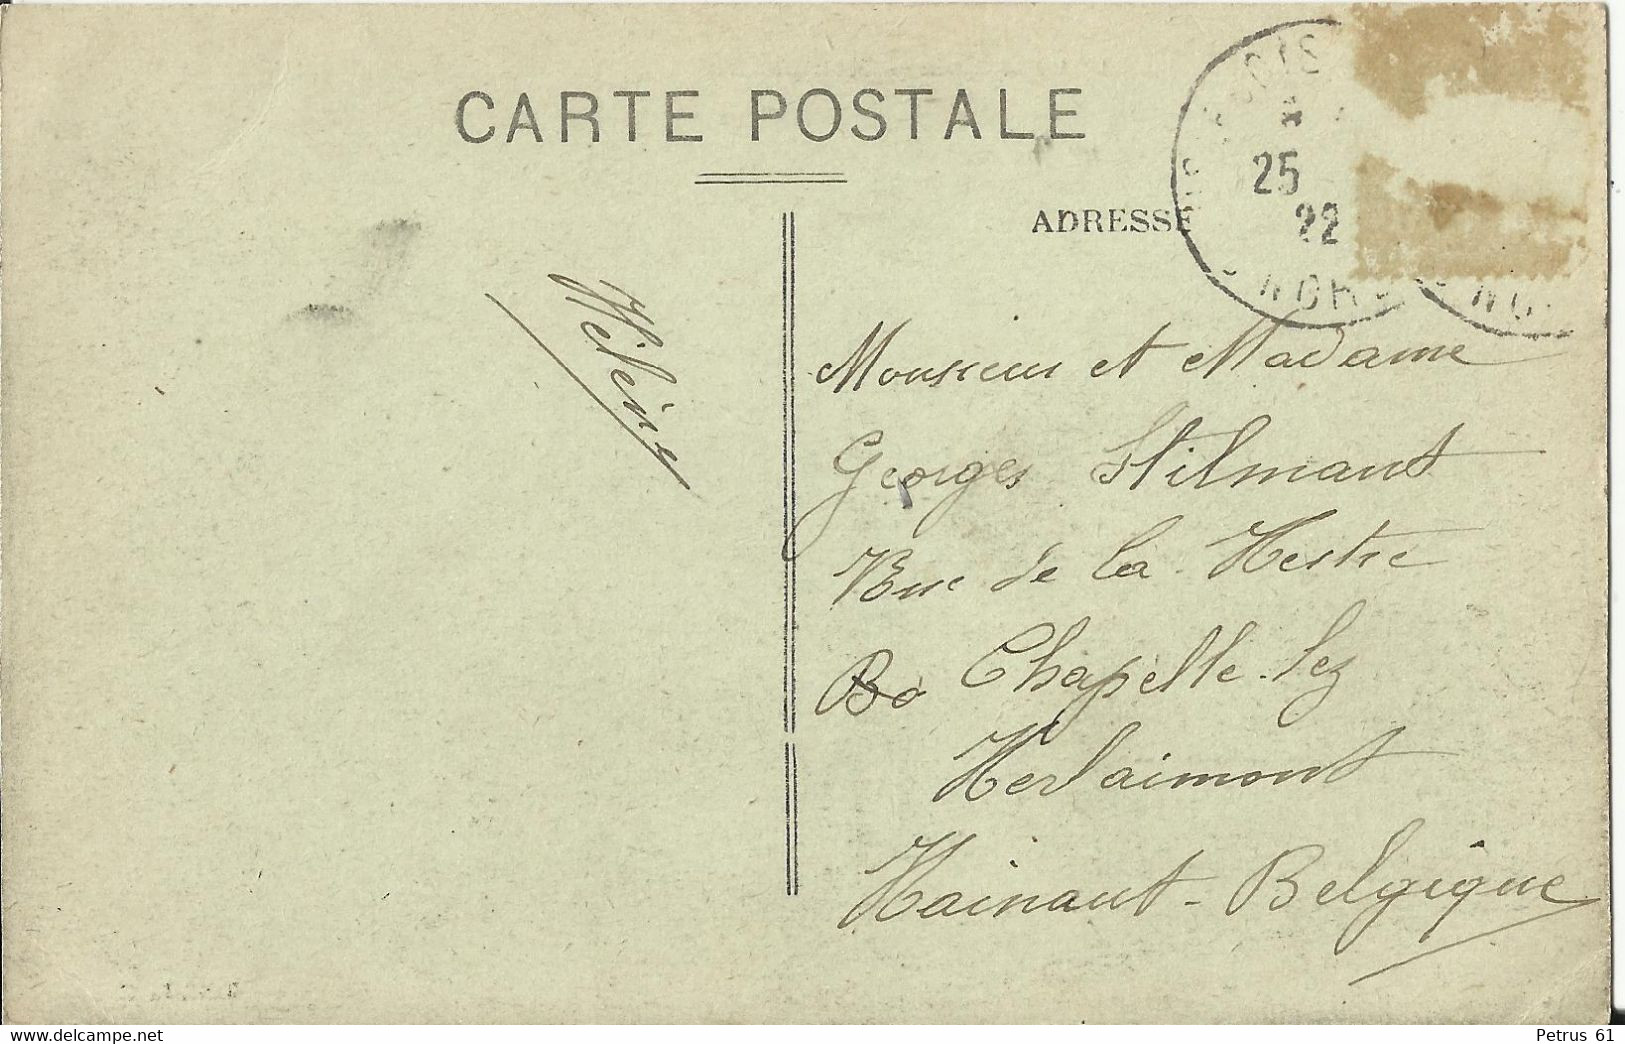 CARTE POSTALE
ADRESSE
25
22
NORD
Hélène
Monsieur et Madame
Georges Stilmant
Rue de la Hestre
Bo Chapelle-lez
Herlaimont
Hainaut - Belgique
https://www.delcampe.net
Petrus 61